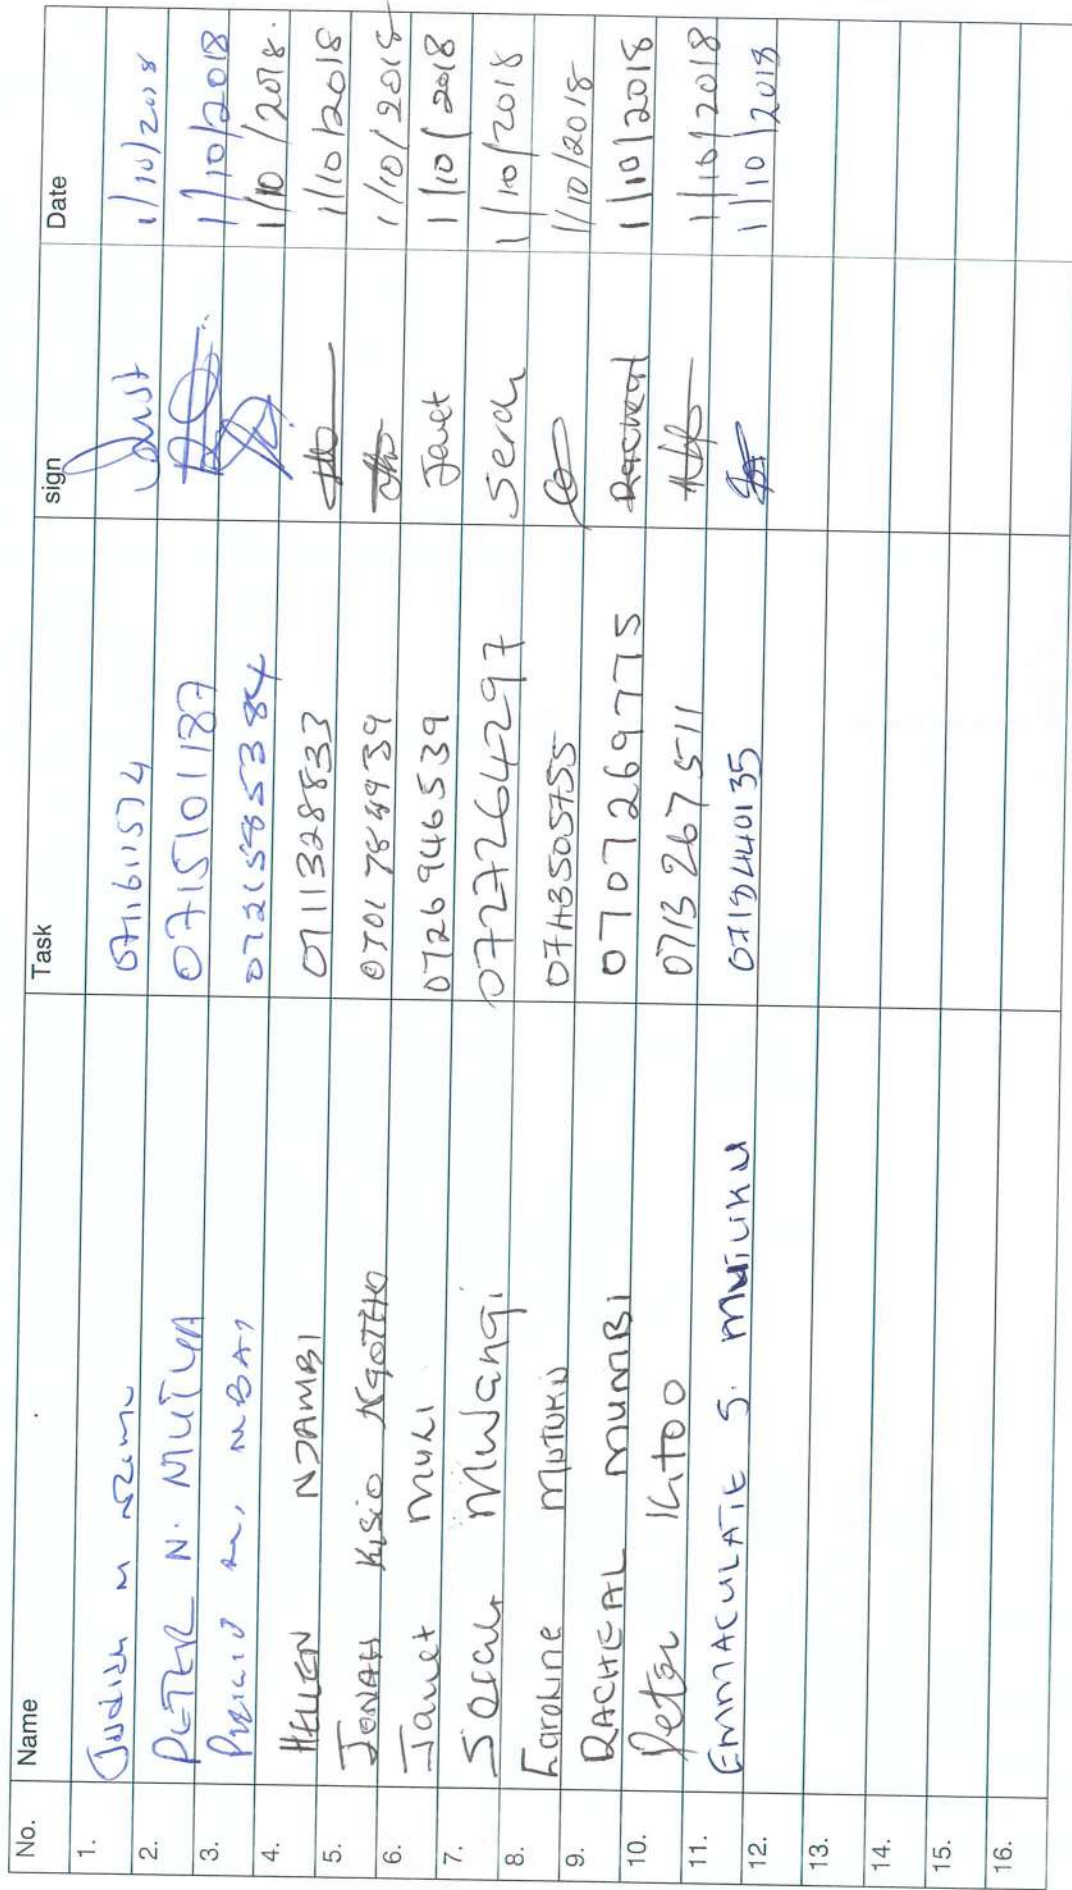 No. Name Task sign Date
1. Judith M Nzamu 0716115574 1/10/2018
2. PETER N. MUTUA 0715101187 1/10/2018
3. M. MBAI 0721585384 1/10/2018.
4. HELLEN NJAMBI 0711328833 1/10/2018
5. JONAH KISIO NGOTHO 0701784939 1/10/2018
6. Janet MULI 0726946539 Janet 1/10/2018
7. Sarah Mwangi 0727264297 Serah 1/10/2018
8. Caroline MUTUKU 1/10/2018
9. RACHEAL MUMBI 0707269775 Racheal 1/10/2018
10. Peter Kitoo 0713267511 1/10/2018
11. EMMACULATE S. MUTUKU 1/10/2018
12.
13.
14.
15.
16.